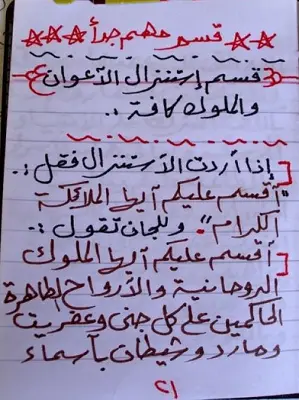 قسم مهم جداً
قسم إستنزال الأعوان
والملوك كافة :.
إذا أردت الأستنزال فقل :.
"أقسم عليكم أيها الملائكة
الكرام". وللجان تقول :.
أقسم عليكم أيها الملوك
الروحانية والأرواح الطاهرة
الحاكمين على كل جني وعفريت
ومارد وشيطان بأسماء
٢١